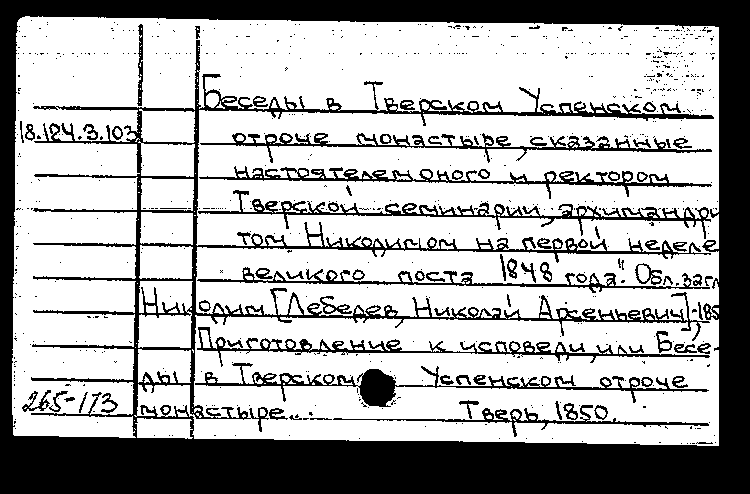 Беседы в Тверском Успенском
18.124.3.103 отроче монастыре, сказанные
настоятелем оного и ректором
Тверской семинарии, архимандри
том Никодимом на первой неделе
великого поста 1848 года". Обл. загл
Никодим [Лебедев, Николай Арсеньевич], 185
Приготовление к исповеди, или Бесе-
ды в Тверском Успенском отроче
265-113 монастыре... Тверь, 1850.